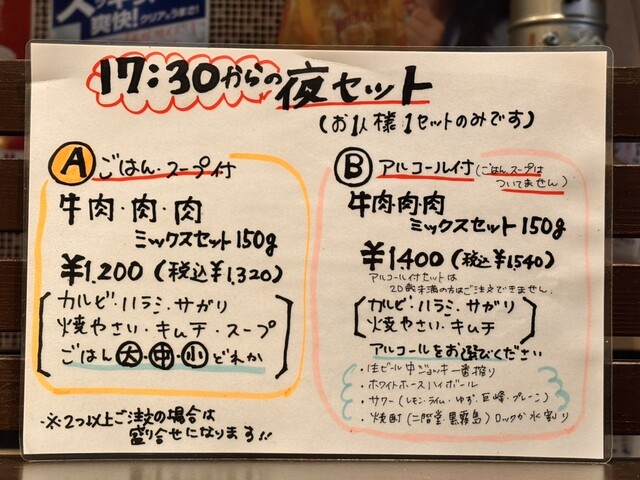 爽快!
クリアうまさ!
17:30からの夜セット
(お1人様1セットのみです)
A ごはん・スープ付
牛肉・肉・肉
ミックスセット150g
¥1,200(税込¥1,320)
カルビ・ハラミ・サガリ
焼やさい・キムチ・スープ
ごはん大・中・小どれか
※2つ以上ご注文の場合は
盛り合せになります!!
B アルコール付(ごはん、スープは
ついてません)
牛肉肉肉
ミックスセット150g
¥1400(税込¥1,540)
アルコール付セットは
20歳未満の方はご注文できません。
カルビ・ハラミ・サガリ
焼やさい・キムチ
アルコールをお選びください
・生ビール中ジョッキ一番搾り
・ホワイトホースハイボール
・サワー(レモン・ライム・ゆず・巨峰・プレーン)
・焼酎(二階堂・黒霧島)ロックか水割り